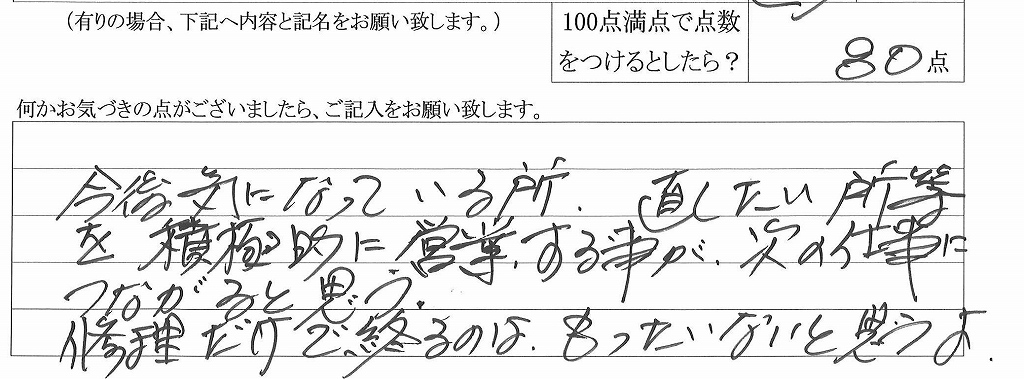 （有りの場合、下記へ内容と記名をお願い致します。）
100点満点で点数
をつけるとしたら？
80点
何かお気づきの点がございましたら、ご記入をお願い致します。
今後気になっている所．直したい所等
を積極的に営業．する事が．次の仕事に
つながると思う．
修理だけで終るのは．もったいないと思うよ．